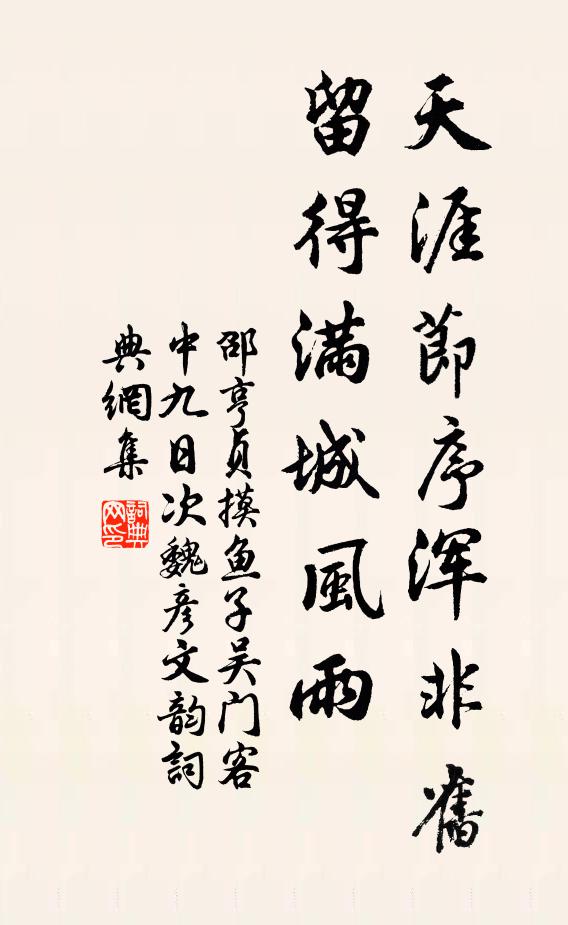 天涯節序浑非舊
留得滿城風雨
邵亨貞摸鱼子吴门客
中九日次魏彦文韵詞
典網集
詞典网印